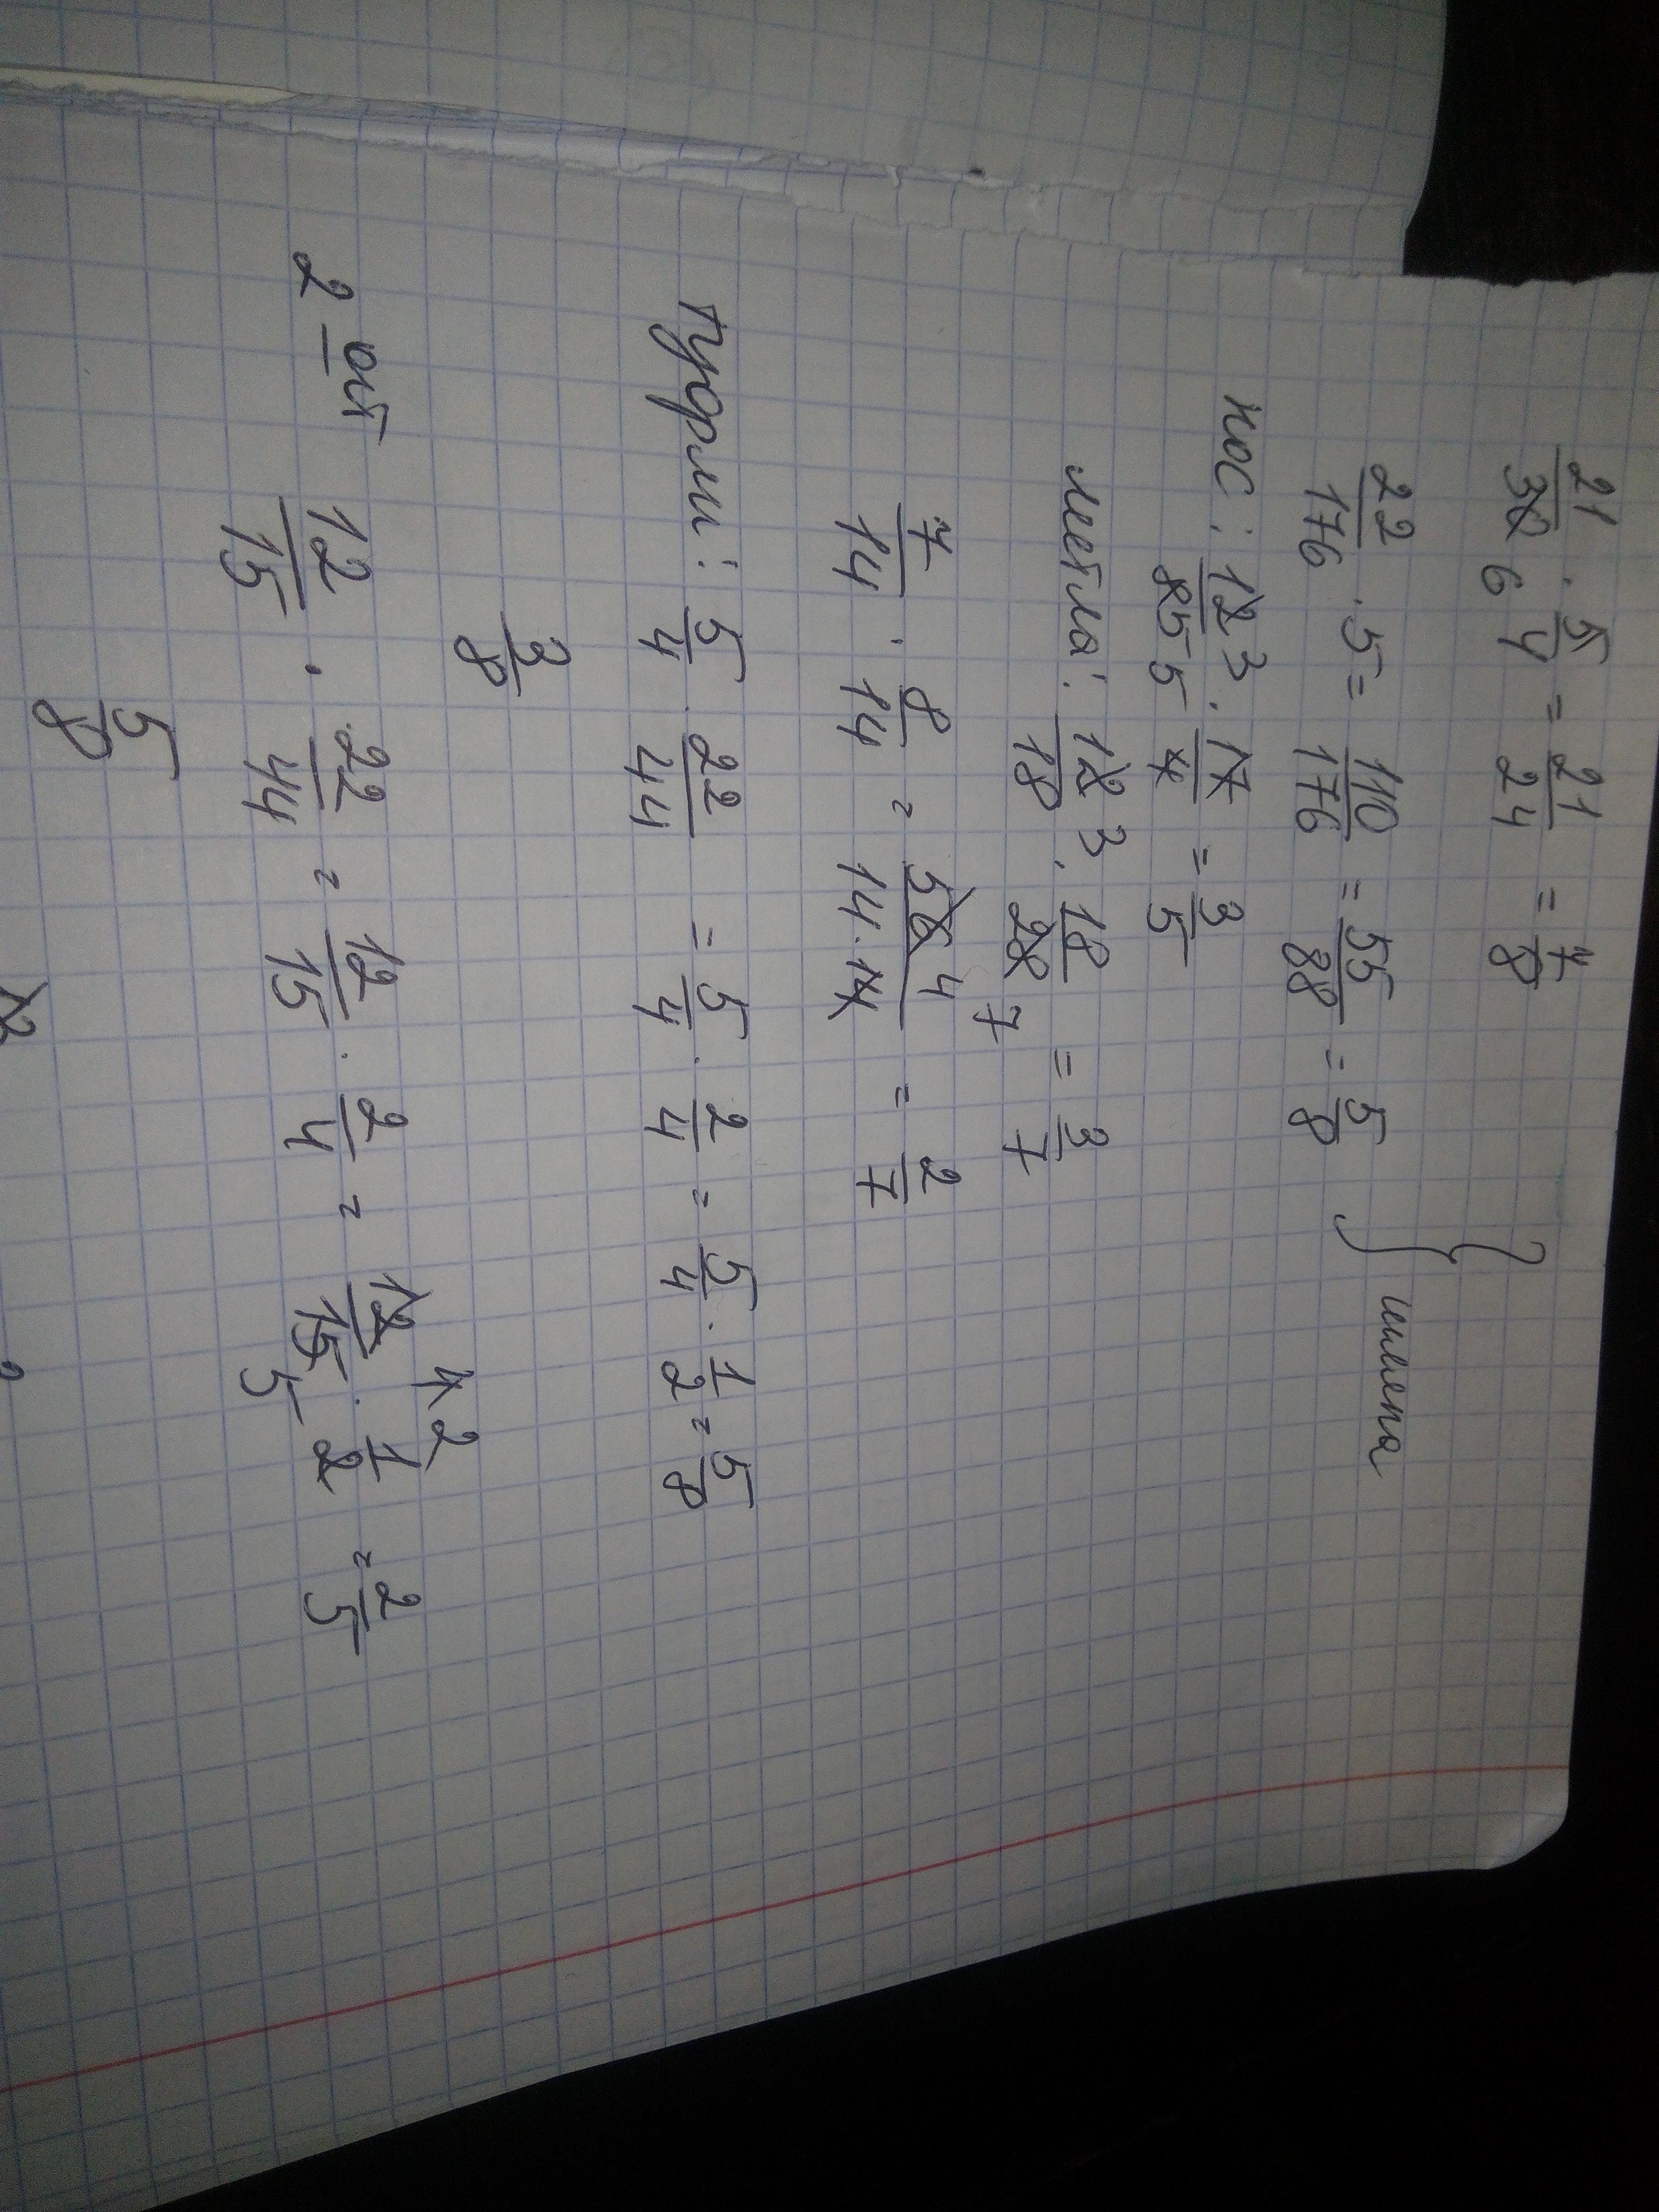 21/30 6 · 5/4 = 21/24 = 7/8
22/176 · 5 = 110/176 = 55/88 = 5/8 } шляпа
нос: 12 3/85 5 · 17/4 = 3/5
метла: 12 3/18 · 18/28 7 = 3/7
7/14 · 8/14 = 56 4/14·14 = 2/7
туфли: 5/4 · 22/44 = 5/4 · 2/4 = 5/4 · 1/2 = 5/8
3/8
2-ой 12/15 · 22/44 = 12/15 · 2/4 = 12 4 2/15 5 · 1/2 = 2/5
5/8